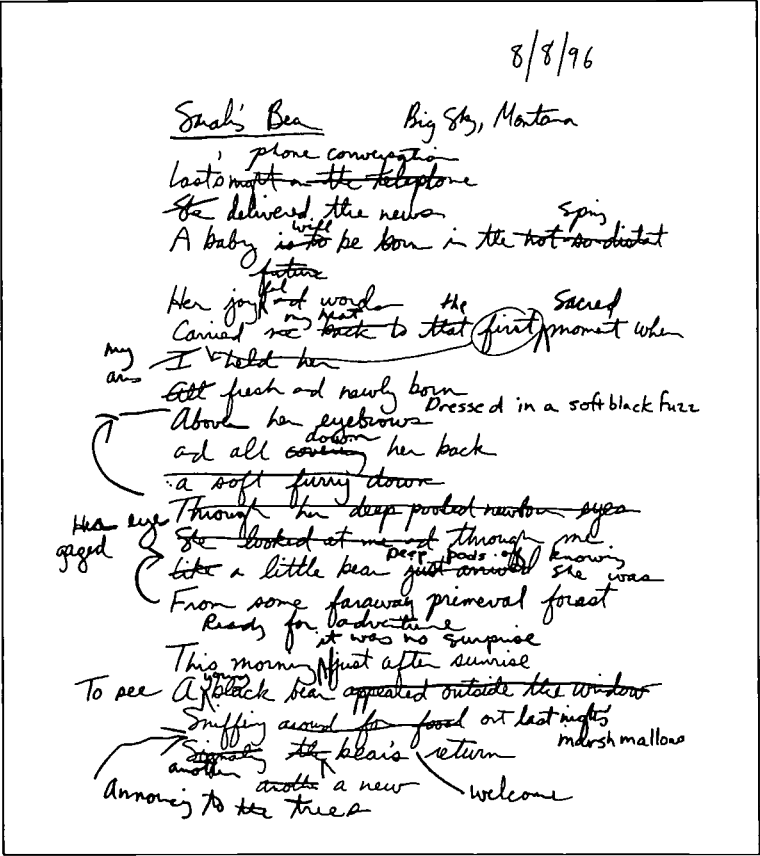 8/8/96
Sarah's Bear Big Sky, Montana
phone conversation
Last's night on the telephone
She delivered the news
will Spring
A baby is to be born in the not-so-distant
future
ful
Her joy and words the Sacred
my heart
Carried me back to that first moment when
my I held her
arms
All fresh and newly born
Dressed in a soft black fuzz
Above her eyebrows
down
and all covering her back
a soft furry down
Through her deep pooled newborn eyes
Her eyes
She looked at me and through me
gazed
Deep pools of knowing
Like a little bear just arrived She was
From some faraway primeval forest
Ready for adventure
it was no surprise
This morning just after sunrise
young
To see A black bear appeared outside the window
Sniffing around for food out last night's
marshmallows
Signaling the bear's return
another
another a new welcome
Announcing to the trees